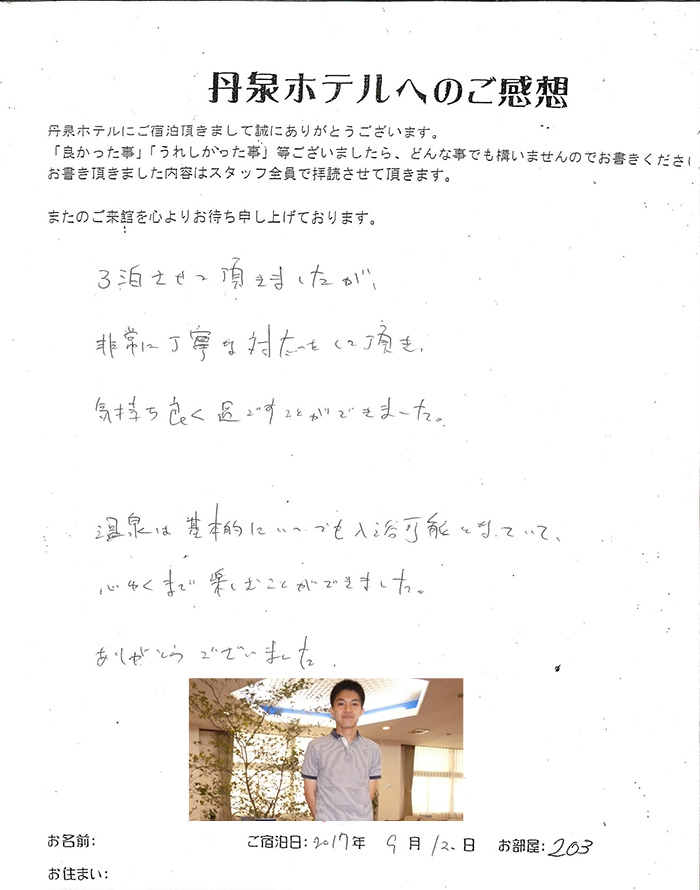 丹泉ホテルへのご感想
丹泉ホテルにご宿泊頂きまして誠にありがとうございます。
「良かった事」「うれしかった事」等ございましたら、どんな事でも構いませんのでお書きくださ
お書き頂きました内容はスタッフ全員で拝読させて頂きます。
またのご来館を心よりお待ち申し上げております。
3泊させて頂きましたが、
非常に丁寧な対応をして頂き、
気持ち良く過ごすことができました。
温泉は基本的にいつでも入浴可能となっていて、
心ゆくまで楽しむことができました。
ありがとうございました.
お名前: ご宿泊日: 2017年 9月 12日 お部屋: 203
お住まい: